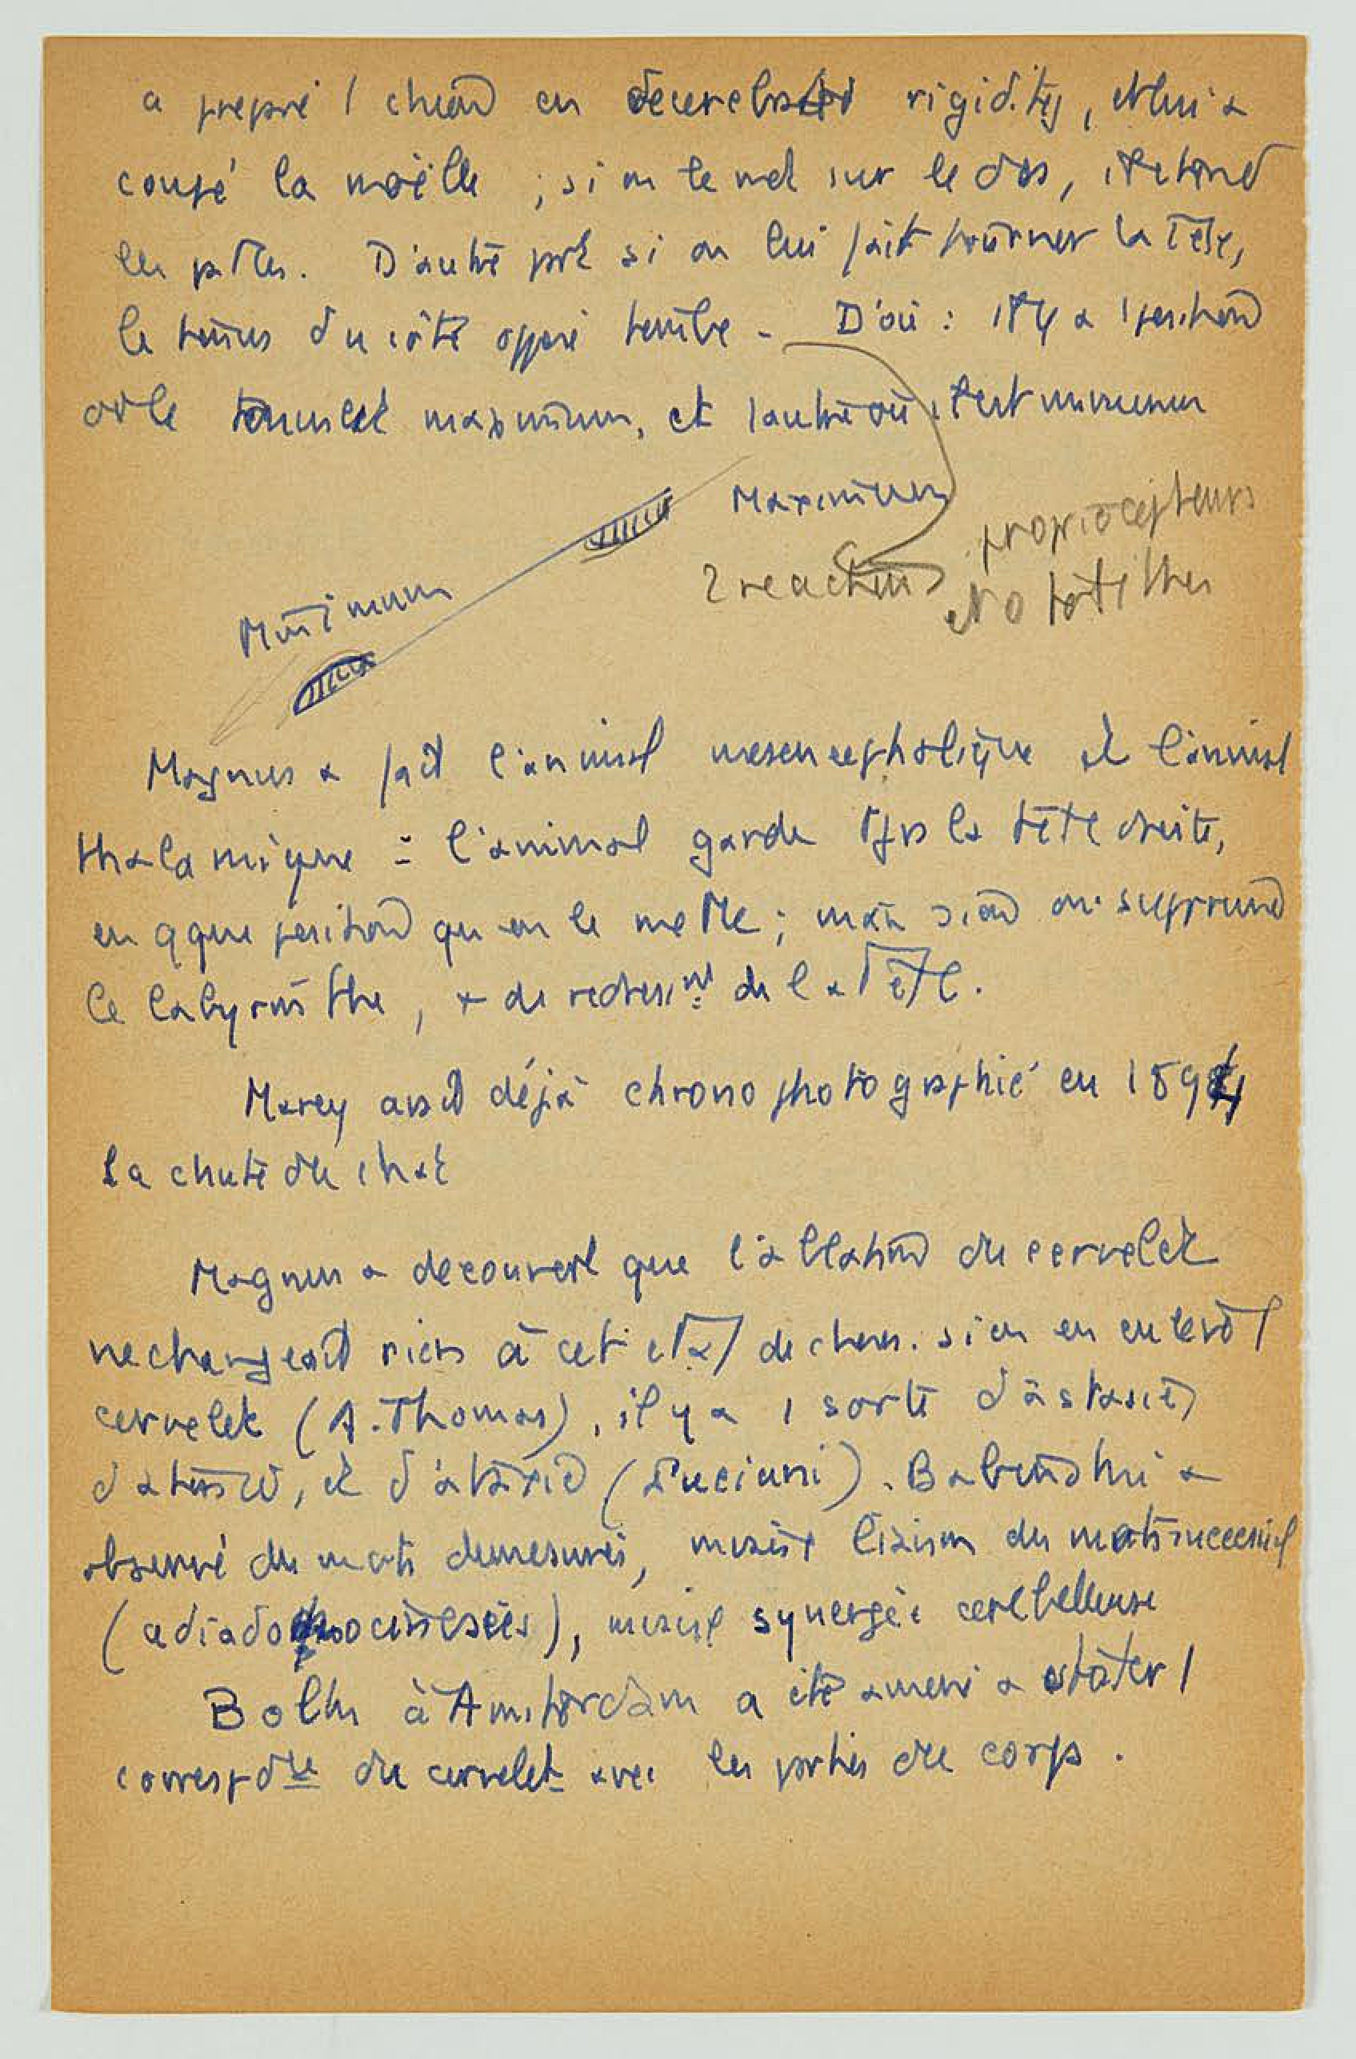 a preparé 1 chien en decerebrated rigidity, et lui a
coupé la moëlle ; si on le met sur le dos, il etend
les pattes. D'autre part si on lui fait tourner la Tête,
le tonus du côté opposé tombe - D'où : il y a 1 position
où le tonus est maximum, et 1 autre où il est minimum
Maximum
2 reactions
propriocepteurs
et
Minimum
Magnus a fait l'animal mesencephalique et l'animal
thalamique : l'animal garde tjrs la tête droite,
en qque position qu'on le mette ; mais si on supprime
le labyrinthe, + de redresst de la Tête.
Marey avait déjà chronophotographié en 1894
la chute du chat
Magnus a decouvert que l'ablation du cervelet
ne changeait rien à cet état de choses. si on en enlevôt
cervelet (A. Thomas), il y a 1 sorte d'astasie,
d'atonie, et d'ataxie (Luciani). Babinski a
observé des mvts demesurés, des mvts successifs
(adiadochocinesies), synergie cerebelleuse
Bolk à Amsterdam a été amené a cstater 1
correspdce du cervelet avec les parties du corps.